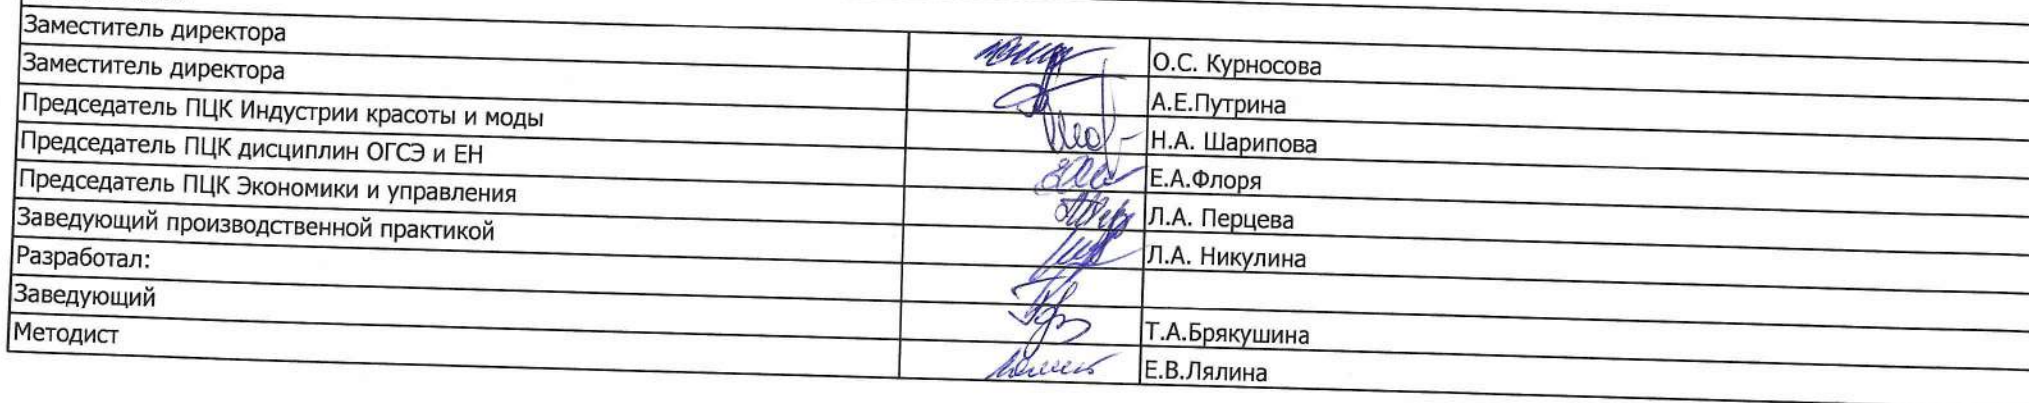 Заместитель директора О.С. Курносова
Заместитель директора А.Е.Путрина
Председатель ПЦК Индустрии красоты и моды Н.А. Шарипова
Председатель ПЦК дисциплин ОГСЭ и ЕН Е.А.Флоря
Председатель ПЦК Экономики и управления Л.А. Перцева
Заведующий производственной практикой Л.А. Никулина
Разработал:
Заведующий Т.А.Брякушина
Методист Е.В.Лялина